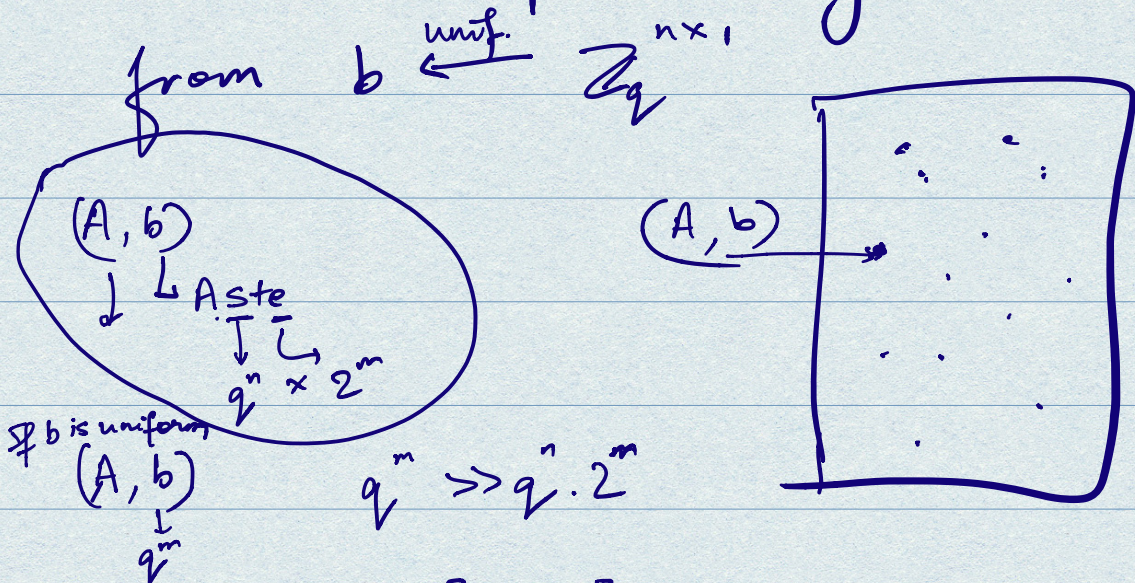 from b ←unif. ℤ_q^{n×1}
(A, b)
As+e
q^n × 2^m
If b is uniform
(A, b)
q^m
q^m >> q^n . 2^m
(A, b)